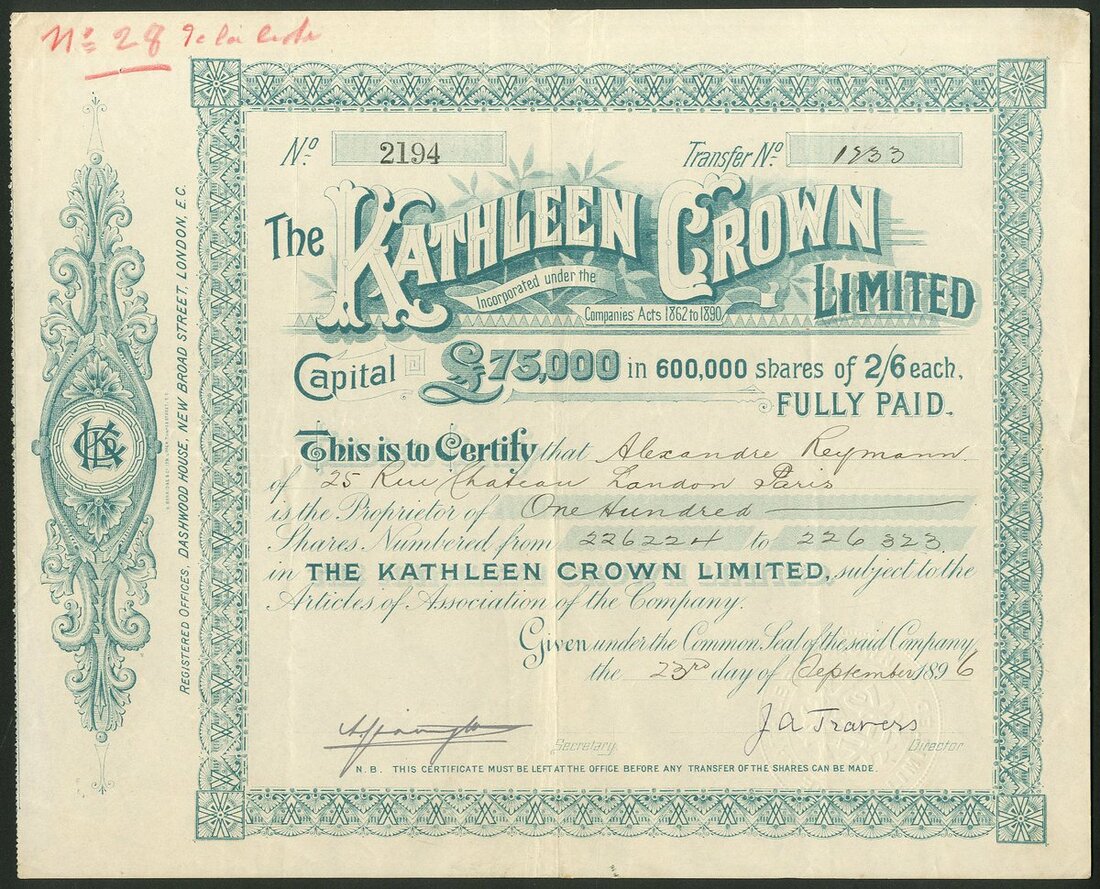 No. 28
No. 2194
Transfer No. 1833
The KATHLEEN CROWN
LIMITED
Incorporated under the
Companies' Acts 1862 to 1890
Capital £75,000 in 600,000 shares of 2/6 each,
FULLY PAID.
This is to Certify that Alexandre Reymann
of 25 Rue Chateau Landon Paris
is the Proprietor of One Hundred
Shares Numbered from 226224 to 226323
in THE KATHLEEN CROWN LIMITED, subject to the
Articles of Association of the Company.
Given under the Common Seal of the said Company
the 23rd day of September 1896
J A Travers
Secretary. Director.
N.B. THIS CERTIFICATE MUST BE LEFT AT THE OFFICE BEFORE ANY TRANSFER OF THE SHARES CAN BE MADE.
REGISTERED OFFICES, DASHWOOD HOUSE, NEW BROAD STREET, LONDON, E.C.